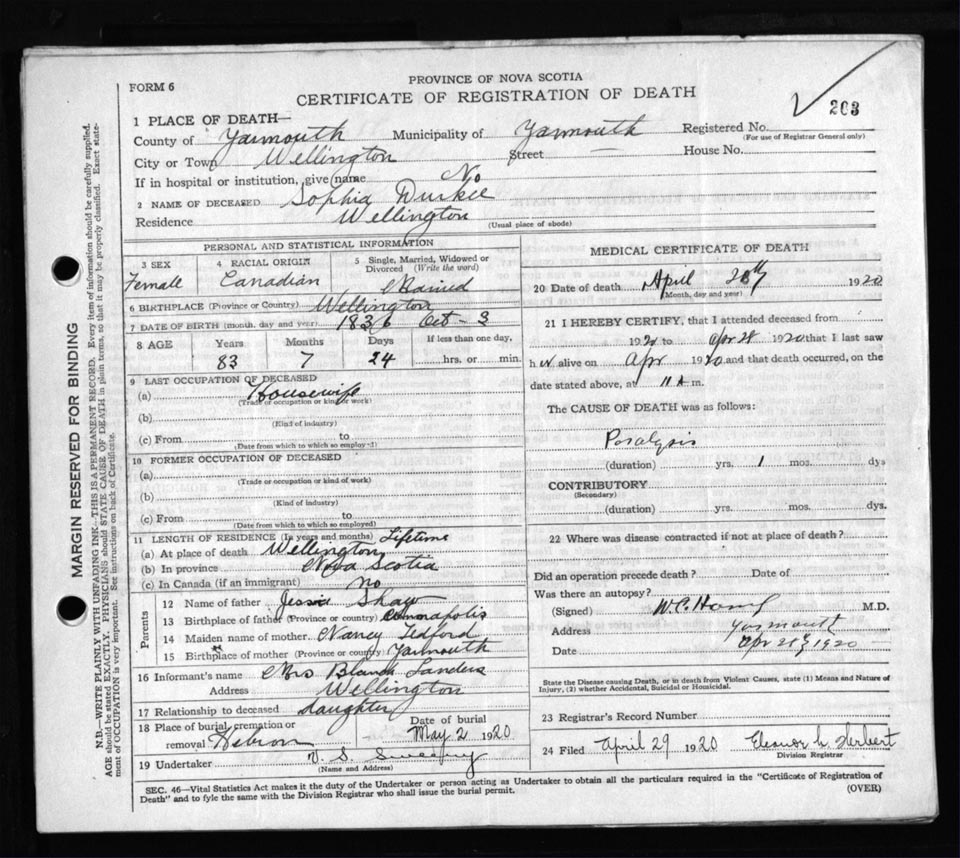 PROVINCE OF NOVA SCOTIA
FORM 6
CERTIFICATE OF REGISTRATION OF DEATH
203
1 PLACE OF DEATH—
County of Yarmouth Municipality of Yarmouth Registered No.
(For use of Registrar General only)
City or Town Wellington Street — House No.
If in hospital or institution, give name No
2 NAME OF DECEASED Sophia Durkee
Residence Wellington (Usual place of abode)
PERSONAL AND STATISTICAL INFORMATION
3 SEX Female
4 RACIAL ORIGIN Canadian
5 Single, Married, Widowed or Divorced (Write the word) Married
6 BIRTHPLACE (Province or Country) Wellington
7 DATE OF BIRTH (month, day and year) 1836 Oct - 3
8 AGE Years Months Days If less than one day,
83 7 24 hrs. or min.
9 LAST OCCUPATION OF DECEASED
(a) Housewife
(Trade or occupation or kind of work)
(b)
(Kind of industry)
(c) From to
(Date from which to which so employed)
10 FORMER OCCUPATION OF DECEASED
(a)
(Trade or occupation or kind of work)
(b)
(Kind of industry)
(c) From to
(Date from which to which so employed)
11 LENGTH OF RESIDENCE (In years and months) Lifetime
(a) At place of death Wellington
(b) In province Nova Scotia
(c) In Canada (if an immigrant) no
Parents
12 Name of father Jessie Shaw
13 Birthplace of father (Province or country) Annapolis
14 Maiden name of mother Nancy Tedford
15 Birthplace of mother (Province or country) Yarmouth
16 Informant's name Mrs Blanch Landers
Address Wellington
17 Relationship to deceased daughter
18 Place of burial, cremation or removal Hebron
Date of burial May 2 1920
19 Undertaker V. S. Sweeny
(Name and Address)
MEDICAL CERTIFICATE OF DEATH
20 Date of death April 28th 1920
(Month, day and year)
21 I HEREBY CERTIFY, that I attended deceased from
1920 to Apr 28 1920 that I last saw
her alive on Apr 1920 and that death occurred, on the
date stated above, at 11 A m.
The CAUSE OF DEATH was as follows:
Paralysis
(duration) yrs. 1 mos. dys
CONTRIBUTORY
(Secondary)
(duration) yrs. mos. dys.
22 Where was disease contracted if not at place of death?
Did an operation precede death? Date of
Was there an autopsy?
(Signed) M.D.
Address Yarmouth
Date Apr 28 1920
State the Disease causing Death, or in death from Violent Causes, state (1) Means and Nature of
Injury, (2) whether Accidental, Suicidal or Homicidal.
23 Registrar's Record Number
24 Filed April 29 1920 Eleanor L. Herbert
Division Registrar
SEC. 46—Vital Statistics Act makes it the duty of the Undertaker or person acting as Undertaker to obtain all the particulars required in the "Certificate of Registration of
Death" and to fyle the same with the Division Registrar who shall issue the burial permit.
(OVER)
MARGIN RESERVED FOR BINDING
N.B.—WRITE PLAINLY WITH UNFADING INK—THIS IS A PERMANENT RECORD. Every item of information should be carefully supplied.
AGE should be stated EXACTLY. PHYSICIANS should STATE CAUSE OF DEATH in plain terms, so that it may be properly classified. Exact statement
of OCCUPATION is very important. See instructions on back of Certificate.